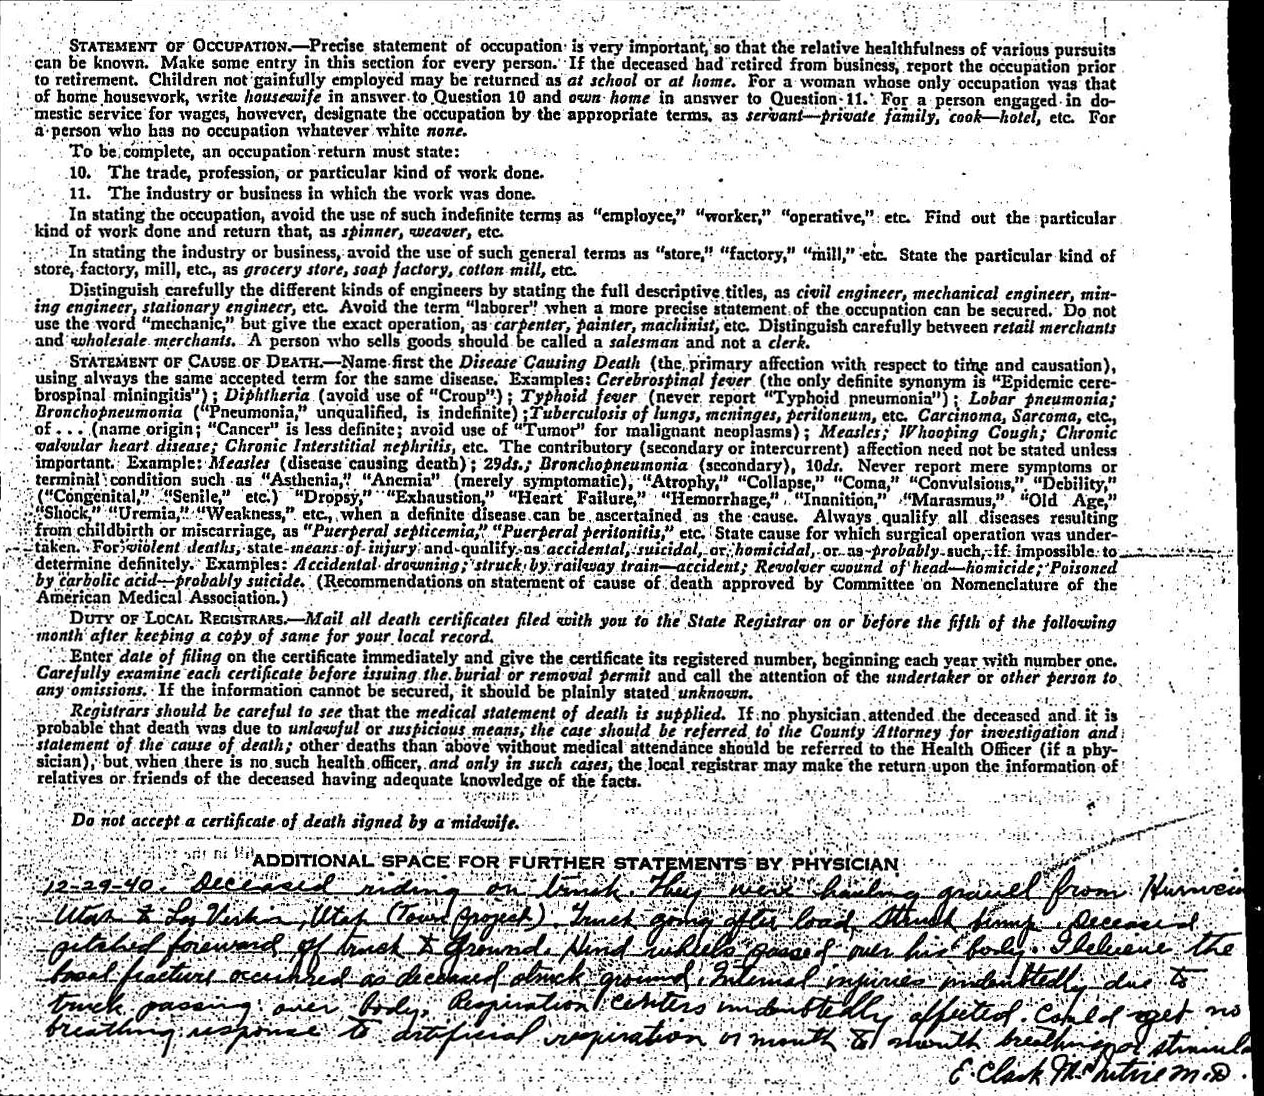 STATEMENT OF OCCUPATION.—Precise statement of occupation is very important, so that the relative healthfulness of various pursuits
can be known. Make some entry in this section for every person. If the deceased had retired from business, report the occupation prior
to retirement. Children not gainfully employed may be returned as at school or at home. For a woman whose only occupation was that
of home housework, write housewife in answer to Question 10 and own home in answer to Question 11. For a person engaged in do-
mestic service for wages, however, designate the occupation by the appropriate terms, as servant—private family, cook—hotel, etc. For
a person who has no occupation whatever white none.
To be complete, an occupation return must state:
10. The trade, profession, or particular kind of work done.
11. The industry or business in which the work was done.
In stating the occupation, avoid the use of such indefinite terms as "employee," "worker," "operative," etc. Find out the particular
kind of work done and return that, as spinner, weaver, etc.
In stating the industry or business, avoid the use of such general terms as "store," "factory," "mill," etc. State the particular kind of
store, factory, mill, etc., as grocery store, soap factory, cotton mill, etc.
Distinguish carefully the different kinds of engineers by stating the full descriptive titles, as civil engineer, mechanical engineer, min-
ing engineer, stationary engineer, etc. Avoid the term "laborer" when a more precise statement of the occupation can be secured. Do not
use the word "mechanic," but give the exact operation, as carpenter, painter, machinist, etc. Distinguish carefully between retail merchants
and wholesale merchants. A person who sells goods should be called a salesman and not a clerk.
STATEMENT OF CAUSE OF DEATH.—Name first the Disease Causing Death (the primary affection with respect to time and causation),
using always the same accepted term for the same disease. Examples: Cerebrospinal fever (the only definite synonym is "Epidemic cere-
brospinal miningitis"); Diphtheria (avoid use of "Croup"); Typhoid fever (never report "Typhoid pneumonia"); Lobar pneumonia;
Bronchopneumonia ("Pneumonia," unqualified, is indefinite); Tuberculosis of lungs, meninges, peritoneum, etc. Carcinoma, Sarcoma, etc.,
of . . . (name origin; "Cancer" is less definite; avoid use of "Tumor" for malignant neoplasms); Measles; Whooping Cough; Chronic
valvular heart disease; Chronic Interstitial nephritis, etc. The contributory (secondary or intercurrent) affection need not be stated unless
important. Example: Measles (disease causing death); 29ds.; Bronchopneumonia (secondary), 10ds. Never report mere symptoms or
terminal condition such as "Asthenia," "Anemia" (merely symptomatic), "Atrophy," "Collapse," "Coma," "Convulsions," "Debility,"
("Congenital," "Senile," etc.) "Dropsy," "Exhaustion," "Heart Failure," "Hemorrhage," "Inanition," "Marasmus," "Old Age,"
"Shock," "Uremia," "Weakness," etc., when a definite disease can be ascertained as the cause. Always qualify all diseases resulting
from childbirth or miscarriage, as "Puerperal septicemia," "Puerperal peritonitis," etc. State cause for which surgical operation was under-
taken. For violent deaths, state means of injury and qualify as accidental, suicidal, or homicidal, or as probably such, if impossible to
determine definitely. Examples: Accidental drowning; struck by railway train—accident; Revolver wound of head—homicide; Poisoned
by carbolic acid—probably suicide. (Recommendations on statement of cause of death approved by Committee on Nomenclature of the
American Medical Association.)
DUTY OF LOCAL REGISTRARS.—Mail all death certificates filed with you to the State Registrar on or before the fifth of the following
month after keeping a copy of same for your local record.
Enter date of filing on the certificate immediately and give the certificate its registered number, beginning each year with number one.
Carefully examine each certificate before issuing the burial or removal permit and call the attention of the undertaker or other person to
any omissions. If the information cannot be secured, it should be plainly stated unknown.
Registrars should be careful to see that the medical statement of death is supplied. If no physician attended the deceased and it is
probable that death was due to unlawful or suspicious means, the case should be referred to the County Attorney for investigation and
statement of the cause of death; other deaths than above without medical attendance should be referred to the Health Officer (if a phy-
sician), but when there is no such health officer, and only in such cases, the local registrar may make the return upon the information of
relatives or friends of the deceased having adequate knowledge of the facts.
Do not accept a certificate of death signed by a midwife.
ADDITIONAL SPACE FOR FURTHER STATEMENTS BY PHYSICIAN
12-29-40. Deceased riding on truck. They were hauling gravel from
Utah to La Verkin, Utah (Town Project). Truck going after load, struck bump. Deceased
pitched foreward off truck to ground. Hind wheels passed over his body. I believe the
basal fracture occurred as deceased struck ground. Internal injuries undoubtedly due to
truck passing over body. Respiration centers undoubtedly affected. Could get no
breathing response to artificial respiration or mouth to mouth breathing or
E. Clark McIntire M.D.